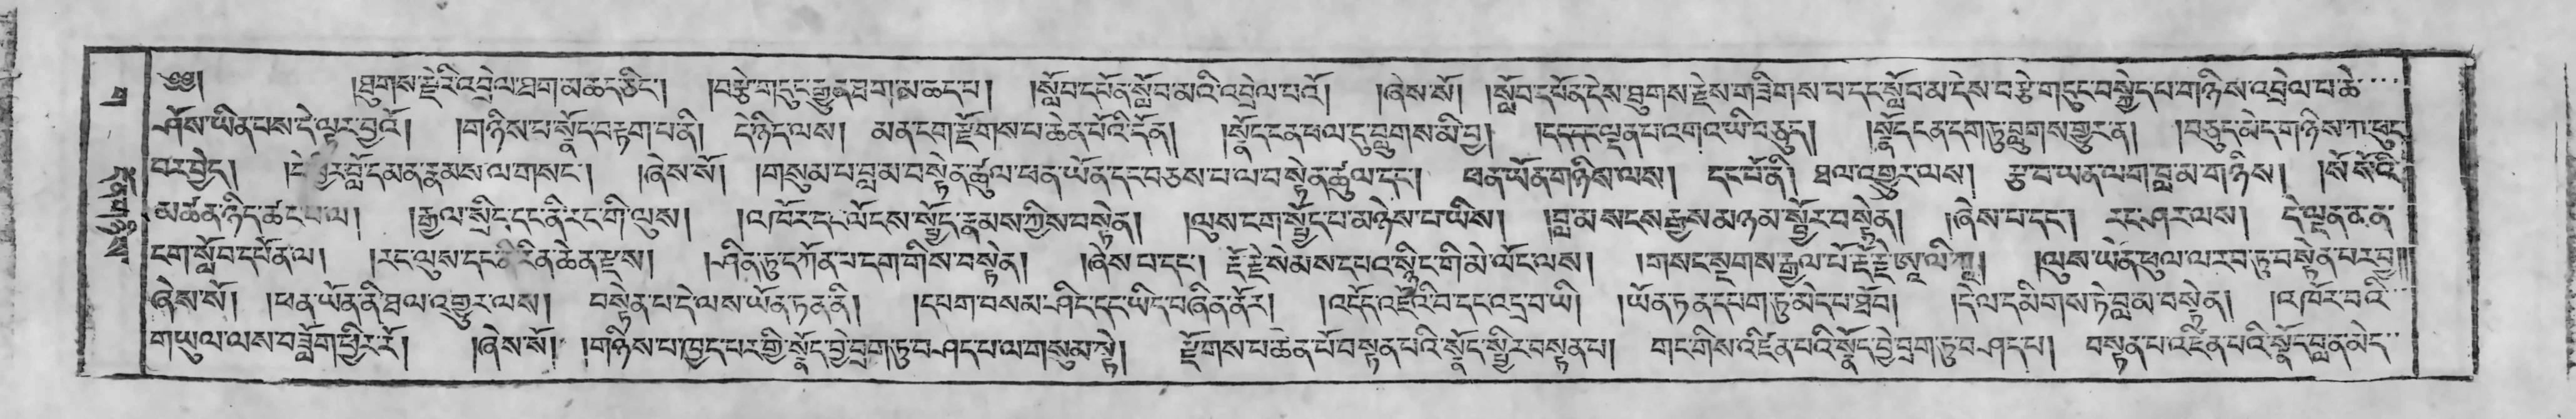 ༄༅། །ཐུགས་རྗེའི་འབྲེལ་ཐག་མ་ཆད་ཅིང་། །བརྩེ་གདུང་རྒྱུན་ཐག་མ་ཆད་པ། །སློབ་དཔོན་སློབ་མའི་འབྲེལ་པའོ། །ཞེས་སོ། །སློབ་དཔོན་དེས་ཐུགས་རྗེས་གཟིགས་པ་དང་སློབ་མ་དེས་བརྩེ་གདུང་བསྐྱེད་པ་གཉིས་འབྲེལ་བ་ཆེ་
ཤོས་ཡིན་པས་དེ་ལྟར་བྱའོ། །གཉིས་པ་སྣོད་བརྟག་པ་ནི། དེ་ཉིད་ལས། མན་ངག་རྫོགས་པ་ཆེན་པོའི་དོན། །སྣོད་ངན་ཕལ་དུ་བླུགས་མི་བྱ། །དད་དང་ལྡན་པ་འགའ་ཡི་བཅུད། །སྣོད་ངན་དག་ཏུ་བླུགས་གྱུར་ན། །བཅུད་མེད་གཉིས་ཀ་ཕུང་
བར་བྱེད། །དེ་ཕྱིར་བློ་དམན་རྣམས་ལ་གསང་། །ཞེས་སོ། །གསུམ་པ་བླ་མ་བསྟེན་ཚུལ་ཕན་ཡོན་དང་བཅས་པ་ལ་བསྟེན་ཚུལ་དང་། ཕན་ཡོན་གཉིས་ལས། དང་པོ་ནི། ཐལ་འགྱུར་ལས། རྩ་བ་ཡན་ལག་བླ་མ་གཉིས། །སོ་སོའི་
མཚན་ཉིད་ཚང་བ་ལ། །རྒྱལ་སྲིད་དང་ནི་རང་གི་ལུས། །འཁོར་དང་ལོངས་སྤྱོད་རྣམས་ཀྱིས་བསྟེན། །ལུས་ངག་སྤྱོད་པ་མཉེས་པ་ཡིས། །བླ་མ་སངས་རྒྱས་མཉམ་སྦྱོར་བསྟེན། །ཞེས་པ་དང་། རང་ཤར་ལས། དེ་ལྡན་མན་
ངག་སློབ་དཔོན་ལ། །རང་ལུས་དང་ནི་རིན་ཆེན་རྫས། །ཤིན་ཏུ་དཀོན་པ་དག་གིས་བསྟེན། །ཞེས་པ་དང་། རྡོ་རྗེ་སེམས་དཔའ་སྙིང་གི་མེ་ལོང་ལས། །གསང་སྔགས་རྒྱལ་པོ་རྡོ་རྗེ་ཨཱ་ལི་ཀཱ། །ལུས་ཡེན་ཕུལ་ལ་རབ་ཏུ་བསྟེན་པར་བྱ།།
ཞེས་སོ། །ཕན་ཡོན་ནི་ཐལ་འགྱུར་ལས། བསྟེན་པ་དེ་ལས་ཡོན་ཏན་ནི། །དཔག་བསམ་ཤིང་དང་ཡིད་བཞིན་ནོར། །འདོད་འཇོའི་བ་དང་འདྲ་བ་ཡི། །ཡོན་ཏན་དཔག་ཏུ་མེད་པ་ཐོབ། །དེ་ལ་དམིགས་ཏེ་བླ་མ་བསྟེན། །འཁོར་བའི་
གཡུལ་ལས་བཟློག་ཕྱིར་རོ། །ཞེས་སོ། །གཉིས་པ་ཁྱད་པར་གྱི་སྣོད་བྱེ་བྲག་ཏུ་བཤད་པ་ལ་གསུམ་སྟེ། རྫོགས་པ་ཆེན་པོ་བསྟན་པའི་སྣོད་སྤྱིར་བསྟན་པ། གང་གིས་འཛིན་པའི་སྣོད་བྱེ་བྲག་ཏུ་བཤད་པ། བསྟན་པ་འཛིན་པའི་སྣོད་བླན་མེད་